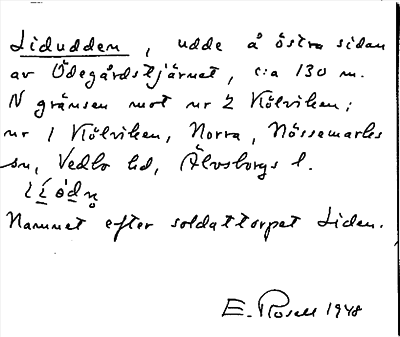 Lidudden, udde å östra sidan
av Ödegårdstjärnet, c:a 130 m.
N gränsen mot nr 2 Kölviken;
nr 1 Kölviken, Norra, Nössemarks
sn, Vedbo hd, Älvsborgs l.
Namnet efter soldattorpet Liden.
E. Rosell 1948